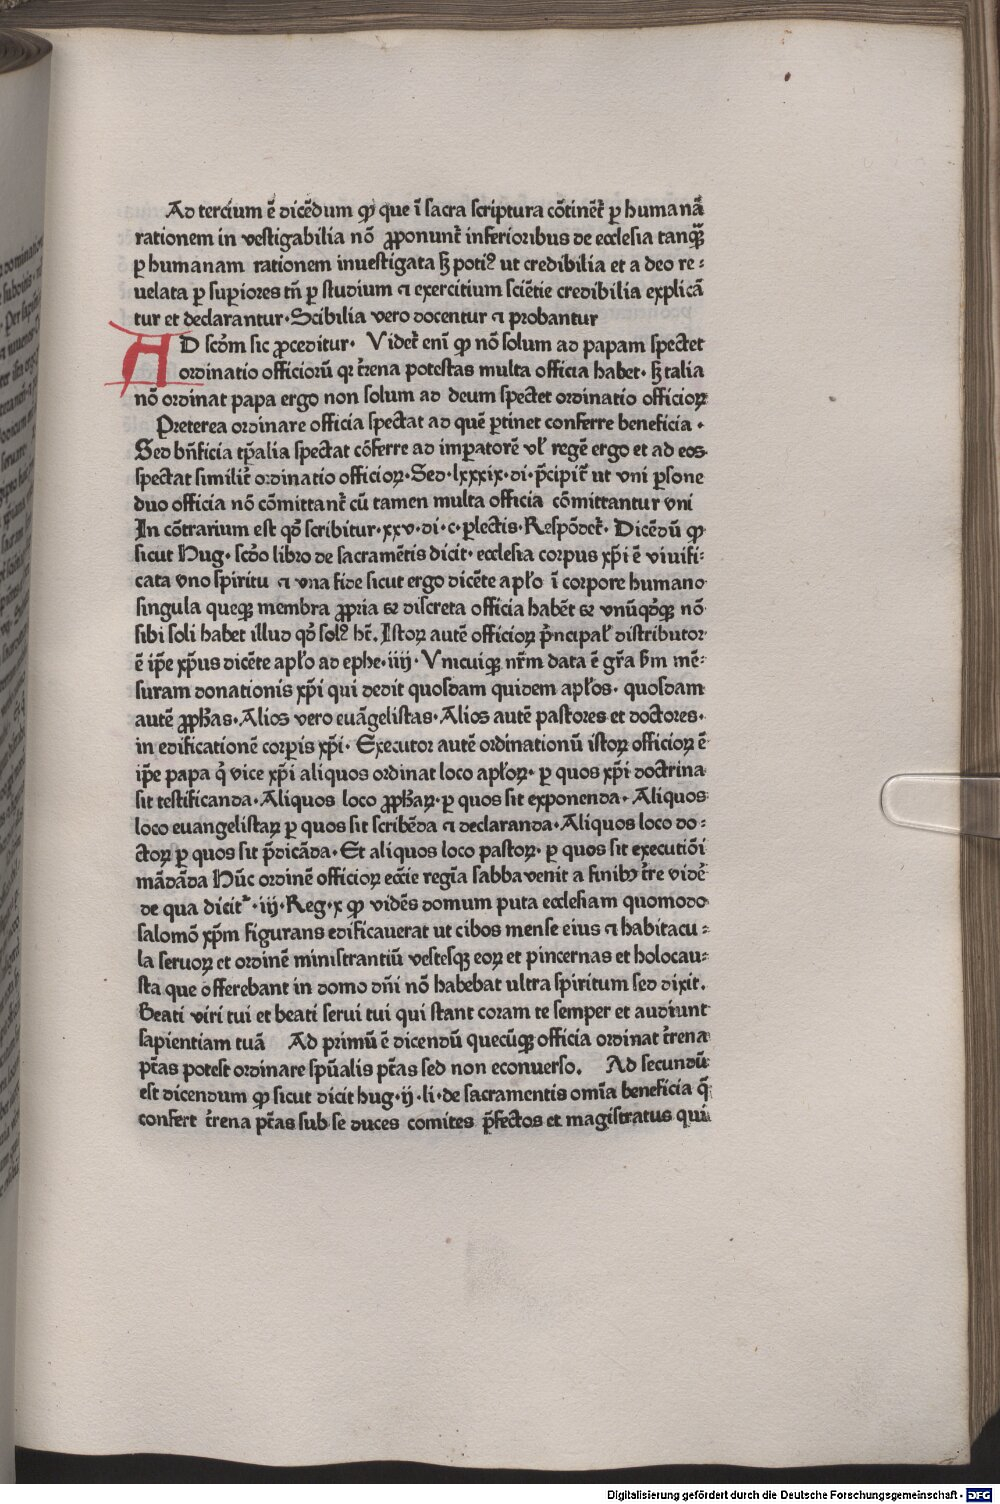 Ad tercium ē dicēdum ꝙ que ī sacra scriptura cōtinēt᷑ ꝑ humanā
rationem in vestigabilia nō ꝓponunt᷑ inferioribus de ecclesia tanqȝ̄
ꝑ humanam rationem inuestigata sꝫ poti⁹ ut credibilia et a deo re⸗
uelata ꝑ suꝑiores tn̄ ꝑ studium ⁊ exercitium sciētie credibilia explicā
tur et declarantur·Scibilia vero docentur ⁊ probantur
AD scd̄m sic ꝓceditur· Videt᷑ enī ꝙ nō solum ad papam spectet
ordinatio officiorū qr t᷑rena potestas multa officia habet· sꝫ talia
nō ordinat papa ergo non solum ad deum spectet ordinatio officioꝝ
Preterea ordinare officia spectat ad quē ꝑtinet conferre beneficia ·
Sed bn̄ficia tꝑalia spectat cōferre ad imꝑatorē vł regē ergo et ad eos
spectat similit᷑ ordinatio officioꝝ·Sed·lxxxix·di·p̄cipit᷑ ut vni ꝑsone
duo officia nō cōmittant᷑ cū tamen multa officia cōmittantur vni
In cōtrarium est qd̄ scribitur·xxv·di·c·ꝑlectis·Respōdet᷑· Dicēdū ꝙ
sicut Hug· scd̄o libro de sacramētis dicit· ecclesia corpus xp̄i ē viuifi⸗
cata vno spiritu ⁊ vna fide sicut ergo dicēte apło ī corpore humano
singula queqꝫ membra ꝓpria ⁊ discreta officia habēt ⁊ vnūqd̄qꝫ nō
sibi soli habet illud qd̄ sol⁹ hꝫ. Istoꝝ autē officioꝝ p̄ncipał distributor
ē ip̄e xp̄us dicēte apło ad ephe·iiij· Vnicuiqꝫ nr̄m data ē gr̄a ẜm mē⸗
suram donationis xp̄i qui dedit quosdam quidem apłos· quosdam
autē ꝓph̄as·Alios vero euāgelistas·Alios autē pastores et doctores·
in edificationē corꝑis xp̄i· Executor autē ordinationū istoꝝ officioꝝ ē
ip̄e papa q̇ vice xp̄i aliquos ordinat loco apłoꝝ· ꝑ quos xp̄i doctrina
sit testificanda·Aliquos loco ꝓph̄aꝝ·ꝑ quos sit exponenda· Aliquos
loco euangelistaꝝ ꝑ quos sit scribēda ⁊ declaranda·Aliquos loco do⸗
ctoꝝ ꝑ quos sit p̄dicāda· Et aliquos loco pastoꝝ· ꝑ quos sit executiōi
mādāda Hūc ordinē officioꝝ eccīe regīa sabba venit a finibꝫ t᷑re vidē᷑
de qua dicit᷑·iij·Reg·x ꝙ vidēs domum puta ecclesiam quomodo
salomō xp̄m figurans edificauerat ut cibos mense eius ⁊ habitacu⸗
la seruoꝝ et ordinē ministrantiū vestesqꝫ eoꝝ et pincernas et holocau⸗
sta que offerebant in domo dn̄i nō habebat ultra spiritum sed dixit.
Beati viri tui et beati serui tui qui stant coram te semper et audiunt
sapientiam tuā Ad primū ē dicendū quecūqꝫ officia ordinat t᷑rena
ptās potest ordinare spūalis ptās sed non econuerso. Ad secundū
est dicendum ꝙ sicut dicit hug·ij·li·de sacramentis omīa beneficia q̄
confert t᷑rena ptās sub se duces comites p̄fectos et magistratus qui
Digitalisierung gefördert durch die Deutsche Forschungsgemeinschaft - DFG